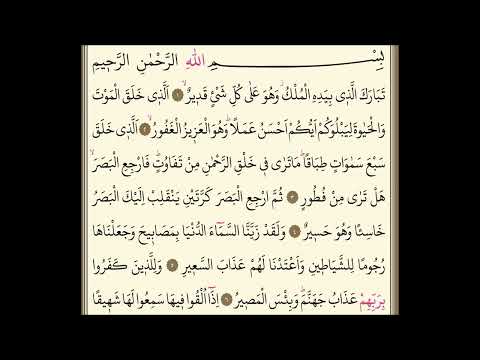 بِسْمِ اللهِ الرَّحْمٰنِ الرَّحِيمِ
تَبَارَكَ الَّذ۪ي بِيَدِهِ الْمُلْكُۘ وَهُوَ عَلٰى كُلِّ شَيْءٍ قَد۪يرٌۙ ﴿١﴾ اَلَّذ۪ي خَلَقَ الْمَوْتَ
وَالْحَيٰوةَ لِيَبْلُوَكُمْ اَيُّكُمْ اَحْسَنُ عَمَلًاۜ وَهُوَ الْعَز۪يزُ الْغَفُورُۙ ﴿٢﴾ اَلَّذ۪ي خَلَقَ
سَبْعَ سَمٰوَاتٍ طِبَاقًاۜ مَا تَرٰى ف۪ي خَلْقِ الرَّحْمٰنِ مِنْ تَفَاوُتٍۜ فَارْجِعِ الْبَصَرَۙ
هَلْ تَرٰى مِنْ فُطُورٍ ﴿٣﴾ ثُمَّ ارْجِعِ الْبَصَرَ كَرَّتَيْنِ يَنْقَلِبْ اِلَيْكَ الْبَصَرُ
خَاسِئًا وَهُوَ حَس۪يرٌ ﴿٤﴾ وَلَقَدْ زَيَّنَّا السَّمَٓاءَ الدُّنْيَا بِمَصَاب۪يحَ وَجَعَلْنَاهَا
رُجُومًا لِلشَّيَاط۪ينِ وَاَعْتَدْنَا لَهُمْ عَذَابَ السَّع۪يرِ ﴿٥﴾ وَلِلَّذ۪ينَ كَفَرُوا
بِرَبِّهِمْ عَذَابُ جَهَنَّمَۜ وَبِئْسَ الْمَص۪يرُ ﴿٦﴾ اِذَٓا اُلْقُوا ف۪يهَا سَمِعُوا لَهَا شَه۪يقًا